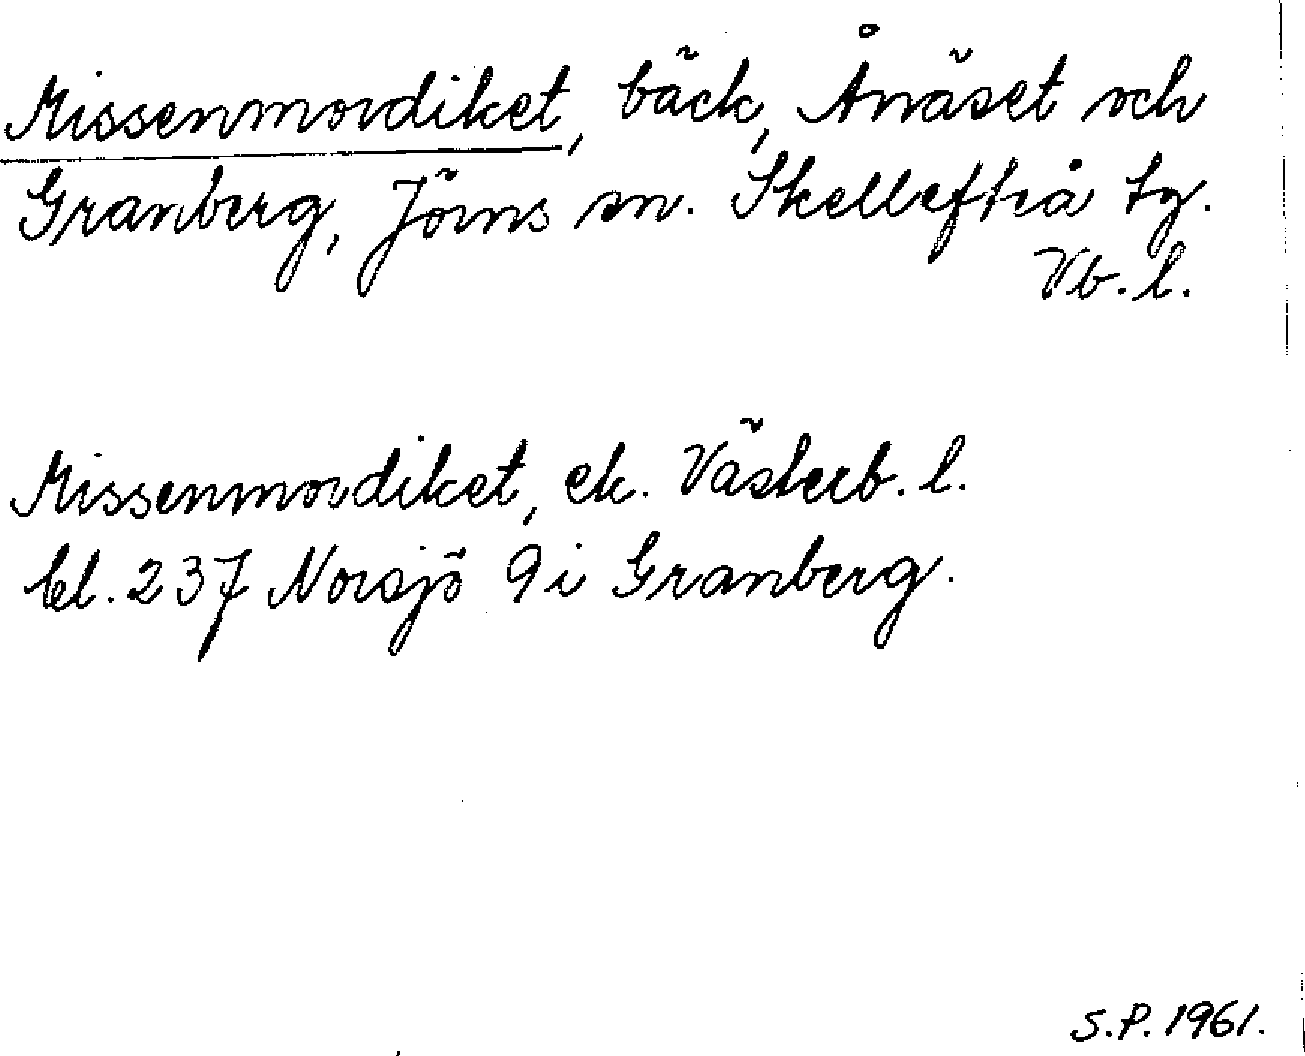 Missenmordiket, bäck, Ånäset och
Granberg, Jörns sn. Skellefteå tg.
Vb. l.
Missenmordiket, ek. Västerb. l.
bl. 237 Norsjö 9 i Granberg.
S.P. 1961.